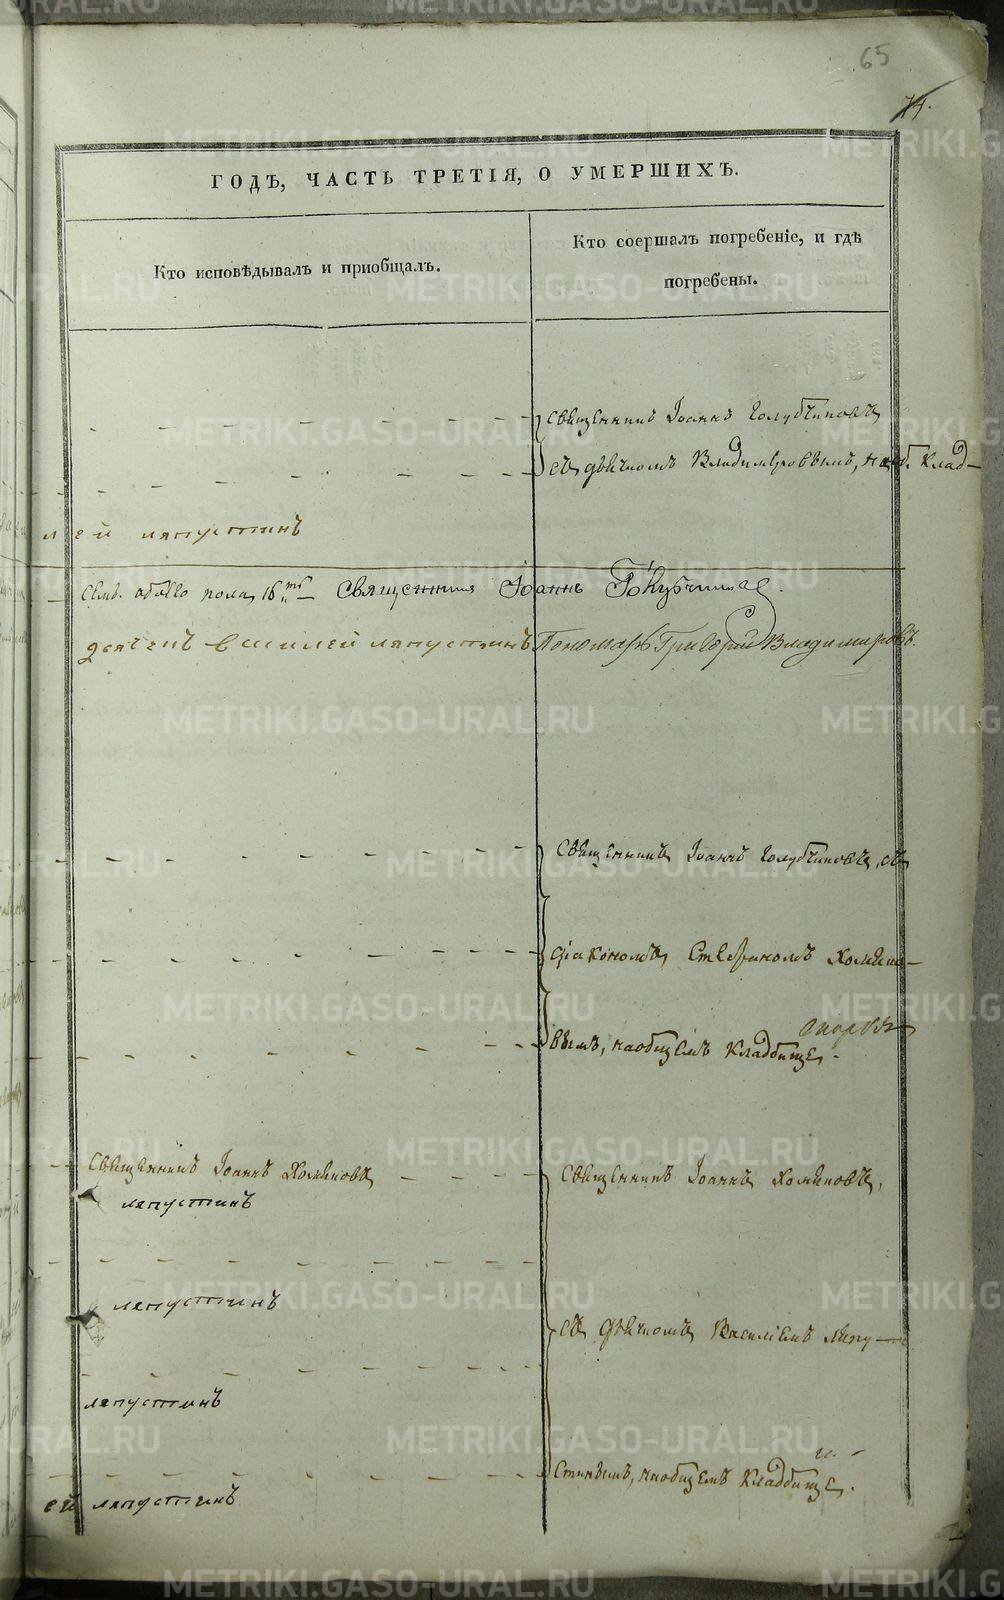 65
74.
ГОДЪ, ЧАСТЬ ТРЕТІЯ, О УМЕРШИХЪ.
Кто исповѣдывалъ и приобщалъ.
Кто соершалъ погребеніе, и гдѣ
погребены.
Священникъ Іоаннъ Голубчиковъ
съ дьячкомъ Владимировымъ, на об. клад-
лей ляпустинъ
обоего пола, 16ть Священник Іоаннъ Голубчиков.
дьячекъ василей ляпустинъ Пономарь Григорий Владимировъ.
Священникъ Іоаннъ Голубчиковъ, съ
діакономъ Стефаномъ Хомяко-
вымъ, на общемъ кладбище.
Священникъ Іоаннъ Хомяковъ
Священникъ Іоаннъ Хомяковъ,
ляпустинъ
ляпустинъ
съ дьячкомъ Василіемъ Ляпу-
ляпустинъ
стинымъ, на общемъ кладбище.
ей ляпустинъ
METRIKI.GASO-URAL.RU